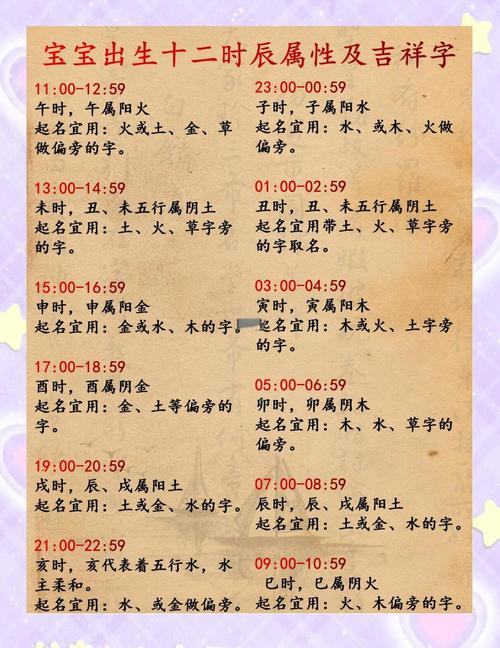 宝宝出生十二时辰属性及吉祥字
11:00-12:59
午时，午属阳火
起名宜用：火或土、金、草
做偏旁的字。
13:00-14:59
未时，丑、未五行属阴土
起名宜用：土、火、草字旁
的字。
15:00-16:59
申时，申属阳金
起名宜用：金或水、木的字。
17:00-18:59
酉时，酉属阴金
起名宜用：金、土等偏旁的
字。
19:00-20:59
戌时，辰、戌属阳土
起名宜用：土或金、水的字。
21:00-22:59
亥时，亥代表着五行水，水
主柔和。
起名宜用：水、或金做偏旁。
23:00-00:59
子时，子属阳水
起名宜用：水、或木、火做
偏旁。
01:00-02:59
丑时，丑、未五行属阴土
起名宜用带土、火、草字旁
的字取名。
03:00-04:59
寅时，寅属阳木
起名宜用：木或火、土字旁
的字。
05:00-06:59
卯时，卯属阴木
起名宜用：木、水、草字的
偏旁。
07:00-08:59
辰时，辰、戌属阳土
起名宜用：土或金、水的字。
09:00-10:59
巳时，巳属阴火
起名宜用：火、木偏旁的字。